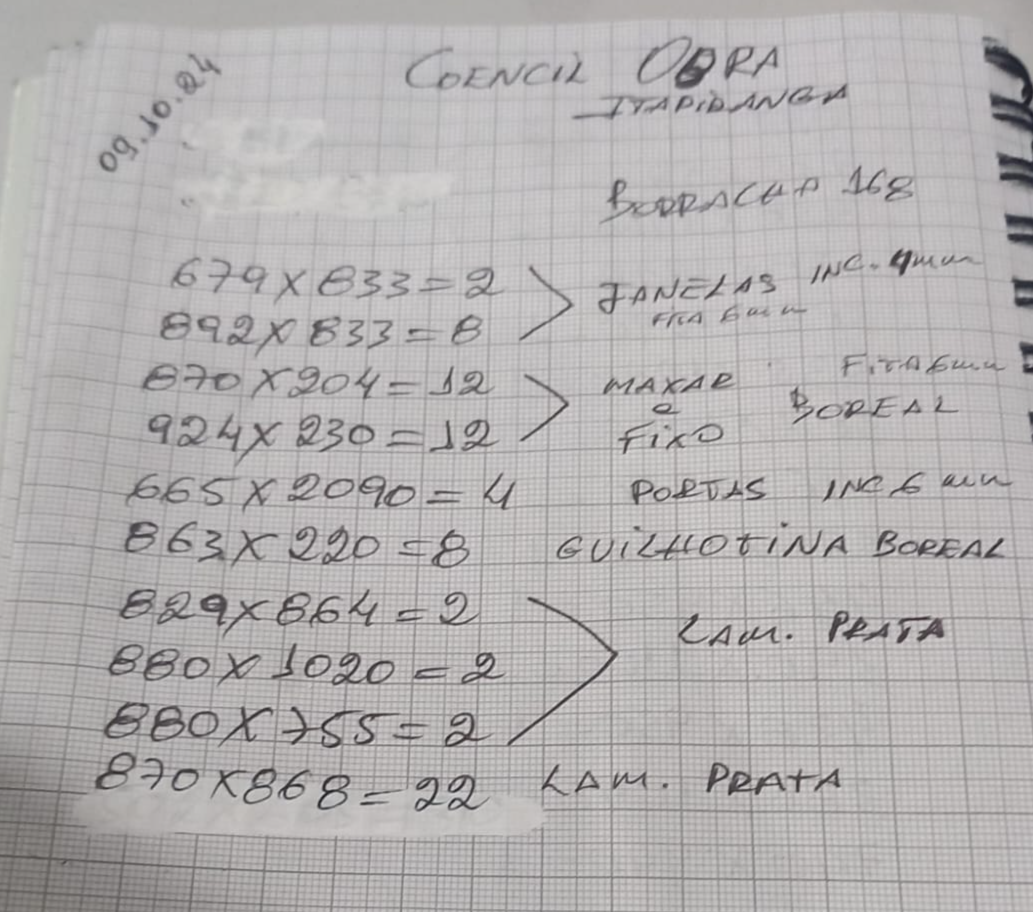 09.10.24
COENCIL OBRA
ITAPIRANGA
BORRACHA 168
679 X 833 = 2
892 X 833 = 8
JANELAS INC. 4mm
FITA 6mm
870 X 204 = 12
924 X 230 = 12
MAXAR e FIXO
FITA 6mm
BOREAL
665 X 2090 = 4 PORTAS INC 6 mm
863 X 220 = 8 GUILHOTINA BOREAL
829 X 864 = 2
880 X 1020 = 2
880 X 755 = 2
LAM. PRATA
870 X 868 = 22 LAM. PRATA